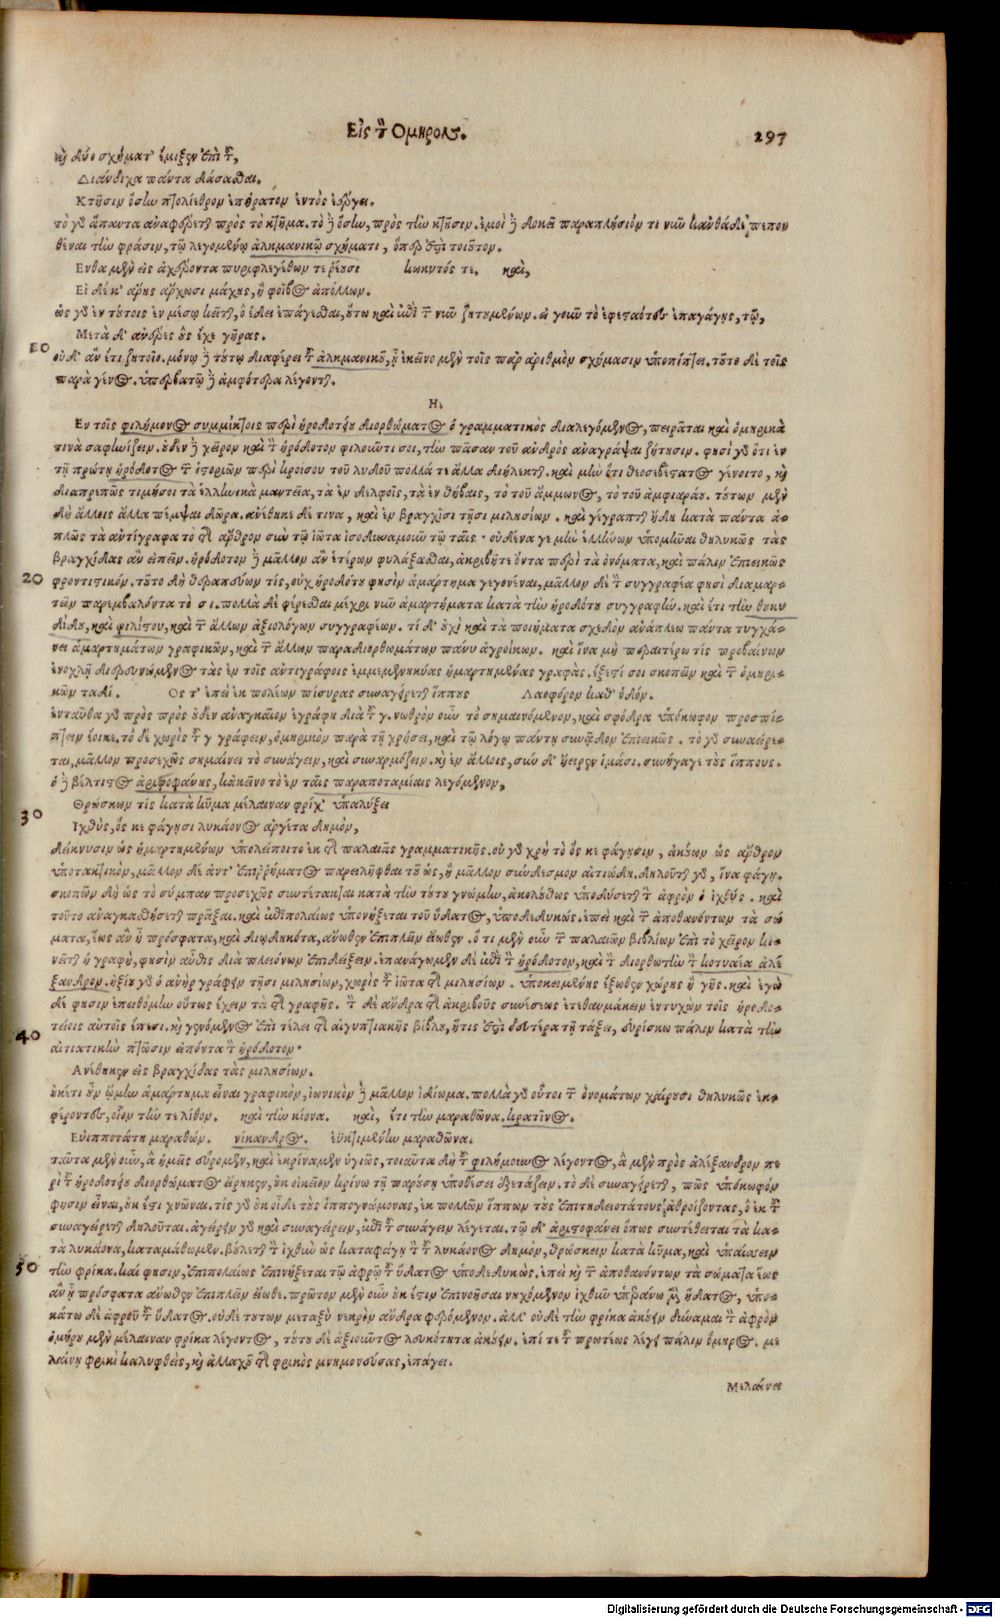 Εἰς τ Ομηρον.
297
καὶ δύο σχήματ' ἔμιξεν ἐπὶ τ,
Διάνδιχα πάντα δάσασθαι.
Κτῆσιν ὅσην πτολίεθρον ἐπήρατον ἐντὸς ἐέργει.
τὸ γὰρ ἅπαντα ἀναφέρεται πρὸς τὸ κτῆμα. τὸ δὲ ὅσην, πρὸς τὴν κτῆσιν. ἐμοὶ δὲ δοκεῖ παραπλήσιόν τι νῦν κἀνθάδε πεπον
θέναι τὴν φράσιν, τῷ λεγομένῳ ἀλκμανικῷ σχήματι, ὅπερ ἐστὶ τοιοῦτον.
Ενθα μὲν εἰς ἀχέροντα πυριφλεγέθων τε ῥέουσι κωκυτός τε. καὶ,
Εἰ δέ κ' ἄρης ἄρχωσι μάχης, ἢ φοῖβος ἀπόλλων.
ὡς γὰρ ἐν τούτοις ἐν μέσῳ κεῖται, ὃ ἔδει ἐπάγεσθαι, οὕτω καὶ ἐπὶ τῶν νῦν ζητουμένων. εἰ γοῦν τὸ ἐφεταότες ἐπαγάγῃς, τῷ,
Μετὰ δ' ἀνδρες οὓς ἔχε γῆρας.
20
οὐδ' ἂν ἔτι ζητοῖο. μόνῳ δὲ τούτῳ διαφέρει τοῦ ἀλκμανικοῦ, ᾗ ἐκεῖνο μὲν τοῖς παρ ἀριθμὸν σχήμασιν ὑποπίπτει. τοῦτο δὲ τοῖς
παρὰ γένος. ὑπερβατῷ δὲ ἀμφότερα λέγονται.
Η.
Εν τοῖς φιλήμονος συμμίκτοις περὶ ἡροδοτείου διορθώματος ὁ γραμματικὸς διαλεγόμενος, πειρᾶται καὶ ὁμηρικὰ
τινὰ σαφηνίζειν. οὐδὲν δὲ χεῖρον καὶ τὸν ἡρόδοτον φιλοῦντι σοι, τὴν πᾶσαν τοῦ ἀνδρὸς ἀναγράψαι ζήτησιν. φησὶ γὰρ ὅτι ἐν
τῇ πρώτῃ ἡρόδοτος τῶν ἱστοριῶν περὶ κροίσου τοῦ λυδοῦ πολλά τε ἄλλα διείλεκται. καὶ μὴν ὅτι θεοσεβέστατος γένοιτο, καὶ
διαπρεπῶς τιμήσοι τὰ ἑλληνικὰ μαντεῖα, τὰ ἐν δελφοῖς, τὰ ἐν θήβαις, τὸ τοῦ ἄμμωνος, τὸ τοῦ ἀμφιαράου. τούτων μὲν
δὴ ἄλλοις ἄλλα πέμψαι δῶρα. ἀνέθηκε δέ τινα, καὶ ἐν βραγχῖσι τῇσι μιλησίων. καὶ γέγραπται ἤδη κατὰ πάντα ἁ-
πλῶς τὰ ἀντίγραφα τὸ τῆς ἄρθρον σὺν τῷ ἰῶτα ἰσοδυναμοῦν τῷ ταῖς. οὐδένα γε μὴν ἑλλήνων ὑπομεῖναι θηλυκῶς τὰς
20
βραγχίδας ἂν εἰπεῖν. ἡρόδοτον δὲ μᾶλλον ἂν ἑτέρων φυλάξασθαι, ἀκριβῆ τε ὄντα περὶ τὰ ὀνόματα, καὶ πάνυ ἐπιεικῶς
φροντιστικόν. τοῦτο δὴ θεραπεύων τίς, οὐχ ἡροδότου φησὶν ἁμάρτημα γεγονέναι, μᾶλλον δὲ τὸν συγγραφέα φησὶ διαμαρ-
τεῖν παρεμβαλόντα τὸ σι. πολλὰ δὲ φέρεσθαι μέχρι νῦν ἁμαρτήματα κατὰ τὴν ἡροδότου συγγραφὴν. καὶ ἔτι τὴν θουκυ
δίδου, καὶ φιλίστου, καὶ τῶν ἄλλων ἀξιολόγων συγγραφέων. τί δ' οὐχὶ καὶ τὰ ποιήματα σχεδὸν ἀνάπλεω πάντα τυγχά-
νει ἁμαρτημάτων γραφικῶν, καὶ τῶν ἄλλων παραδιορθωμάτων πάνυ ἀγροίκων. καὶ ἵνα μὴ περαιτέρω τίς προβαίνων
ἐνοχλῇ διερευνώμενος τὰς ἐν τοῖς ἀντιγράφοις ἐμμεμενηκυίας ἡμαρτημένας γραφὰς. ἔξεστί σοι σκοπεῖν καὶ τῶν ὁμηρι-
κῶν ταδί. Ος τ' ἐπεὶ ἐκ πολέων πίσυρας συναγείρεται ἵππους Λαοφόρον καθ' ὁδόν.
ἐνταῦθα γὰρ πρὸς πρὸς οὐδὲν ἀναγκαῖον ἐγράφη διὰ τοῦ γ. νωθρὸν οὖν τὸ σημαινόμενον, καὶ σφόδρα ὑπόκωφον προσπί-
πτειν ἔοικε. τὸ δὲ χωρὶς τοῦ γ γράφειν, ὁμηρικὸν παρὰ τῇ χρήσει, καὶ τῷ λόγῳ πάντῃ συνῷδον ἐπιεικῶς. τὸ γὰρ συναείρε-
ται, μᾶλλον προσεχῶς σημαίνει τὸ συνάγειν, καὶ συναρμόζειν. καὶ ἐν ἄλλοις, σύν δ' ἤειρεν ἱμάσι. συνήγαγε τοὺς ἵππους.
ὁ δὲ βέλτιστος ἀριστοφάνης, κἀκεῖνο τὸ ἐν ταῖς παραποταμίαις λεγόμενον,
30
Θρώσκων τίς κατὰ κῦμα μέλαιναν φρῖχ' ὑπαλύξει
Ιχθὺς, ὅς κε φάγῃσι λυκάονος ἀργέτα δημόν,
δείκνυσιν ὡς ἡμαρτημένων ὑπολείποιτο ἐκ τῆς παλαιᾶς γραμματικῆς. οὐ γὰρ χρὴ τὸ ὅς κε φάγῃσιν, ἀκούων ὡς ἄρθρον
ὑποτακτικὸν, μᾶλλον δὲ ἀντ' ἐπιῤῥήματος παρειλῆφθαι τοῦ ὡς, ἢ μᾶλλον σύνδεσμον αἰτιώδη. δηλοῦται γὰρ, ἵνα φάγῃ.
σκοπῶν δὴ ὡς τὸ σύμπαν προσεχῶς συντέτακται κατὰ τὴν τούτου γνώμην, ἀκολούθως ὑποδύσεται τὸν ἀφρὸν ὁ ἰχθύς. καὶ
τοῦτο ἀναγκασθήσεται πρᾶξαι. καὶ ἐπιπολαίως ὑπονήξεται τοῦ ὕδατος, ὑποδεδυκώς. ἐπεὶ καὶ τῶν ἀποθανόντων τὰ σώ
ματα, ἕως ἂν ᾖ πρόσφατα, καὶ διῳδηκότα, ἄνωθεν ἐπιπλεῖν εἴωθεν. ὅ τι μὲν οὖν τῶν παλαιῶν βιβλίων ἐπὶ τὸ χεῖρον κι-
νεῖται ἡ γραφὴ, φησὶν αὖθις διὰ πλειόνων ἐπιδείξειν. ἐπανάγωμεν δὲ ἐπὶ τὸν ἡρόδοτον, καὶ τὸν διορθωτὴν τὸν κοτυαέα ἀλέ
ξανδρον. ἠξίου γὰρ ὁ ἀνὴρ γράφειν τῇσι μιλησίων, χωρὶς τοῦ ἰῶτα τῆς μιλησίων. ὑποκειμένης ἔξωθεν χώρης ἢ γῆς. καὶ ἐγὼ
δέ φησιν ἐπειθόμην οὕτως ἔχειν τὰ τῆς γραφῆς. τὸν δὲ ἄνδρα τῆς ἀκριβοῦς συνέσεως ἐτεθαυμάκειν ἐντυχὼν τοῖς ἡροδο-
40
τείοις αὐτοῖς ἔπεσι. καὶ γενόμενος ἐπὶ τέλει τῆς αἰγυπτιακῆς βίβλου, ἥτις ἐστὶ δευτέρα τῇ τάξει, εὑρίσκω πάλιν κατὰ τὴν
αἰτιατικὴν πτῶσιν εἰπόντα τὸν ἡρόδοτον·
Ανέθηκεν εἰς βραγχίδας τὰς μιλησίων.
οὐκέτι οὖν ᾤμην ἁμάρτημα εἶναι γραφικὸν, ἰωνικὸν δὲ μᾶλλον ἰδίωμα. πολλὰ γὰρ οὗτοι τῶν ὀνομάτων χαίρουσι θηλυκῶς ἐκ-
φέροντες, οἷον τήν τε λίθον. καὶ τὴν κίονα. καὶ, ἔτι τὴν μαραθῶνα. κρατῖνος.
Εὐιπποτάτη μαραθών. νίκανδρος. ἐϋκτιμένην μαραθῶνα.
ταῦτα μὲν οὖν, ἃ ἡμεῖς εὕρομεν, καὶ ἐκρίναμεν ὑγιῶς, τοιαῦτα δὴ τοῦ φιλήμονος λέγοντος, ἃ μὲν πρὸς ἀλέξανδρον πε
ρὶ τοῦ ἡροδοτείου διορθώματος εἴρηκεν, οὐκ οἰκεῖον κρίνω τῇ παρούσῃ ὑποθέσει ἐξετάζειν. τὸ δὲ συναγείρεται, πῶς ὑπόκωφόν
φησιν εἶναι, οὐκ ἔστι γνῶναι. τίς γὰρ οὐκ οἶδε τοὺς ἱππογνώμονας, ἐκ πολλῶν ἵππων τοὺς ἐπιτηδειοτάτους ἀθροίζοντας, ὃ ἐκ τοῦ
συναγείρεται δηλοῦται. ἀγείρειν γὰρ καὶ συναγείρειν, ἐπὶ τοῦ συνάγειν λέγεται. τῷ δ' ἀριστοφάνει ὅπως συντέθειται τὰ κα-
τὰ λυκάονα, καταμάθωμεν. βούλεται τὸν ἰχθὺν ὡς καταφάγῃ τὸν τοῦ λυκάονος δημὸν, θρώσκειν κατὰ κῦμα, καὶ ὑπαΐσσειν
50
τὴν φρῖκα. καί φησιν, ἐπιπολαίως ἐπινήξεται τῷ ἀφρῷ τοῦ ὕδατος ὑποδεδυκώς. ἐπεὶ καὶ τῶν ἀποθανόντων τὰ σώματα ἕως
ἂν ᾖ πρόσφατα ἄνωθεν ἐπιπλεῖν εἴωθε. πρῶτον μὲν οὖν οὐκ ἔστιν ἐπινοῆσαι νηχόμενον ἰχθὺν ὑπεράνω μὲν ὕδατος, ὑπο-
κάτω δὲ ἀφροῦ τοῦ ὕδατος. οὐδὲ τούτων μεταξὺ νεκρὸν ἄνδρα φερόμενον. ἀλλ' οὐδὲ τὴν φρῖκα ἀκούειν δύναμαι τὸν ἀφρὸν
ὁμήρου μὲν μέλαιναν φρῖκα λέγοντος, τούτου δὲ ἀξιοῦντος λευκότητα ἀκούειν. ἐπί τε τοῦ πρωτέως λέγει πάλιν ὅμηρος. με
λαίνῃ φρικὶ καλυφθείς, καὶ ἀλλαχοῦ τῆς φρικὸς μνημονεύσας, ἐπάγει.
Μελαίνει
Digitalisierung gefördert durch die Deutsche Forschungsgemeinschaft - DFG